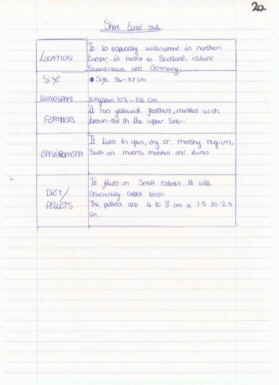 20
Short Eared Owl
LOCATION
It is especially widespread in northern
Europe it nests in Scotland, Iceland
Scandinavia and Germany.
SIZE
Size 34-42 cm
Wingspan 
It has yellowish feathers, marked with
brown on the upper side.
FEATURES
ENVIRONMENT
It lives in open, dry or marshy regions,
Such as moors, marshes and dunes.
DIET/
PELLETS
It feeds on Small rodents. It will
occasionally catch birds
The pellets are 4 to 8 cm x 1.5 to 2.5
cm.